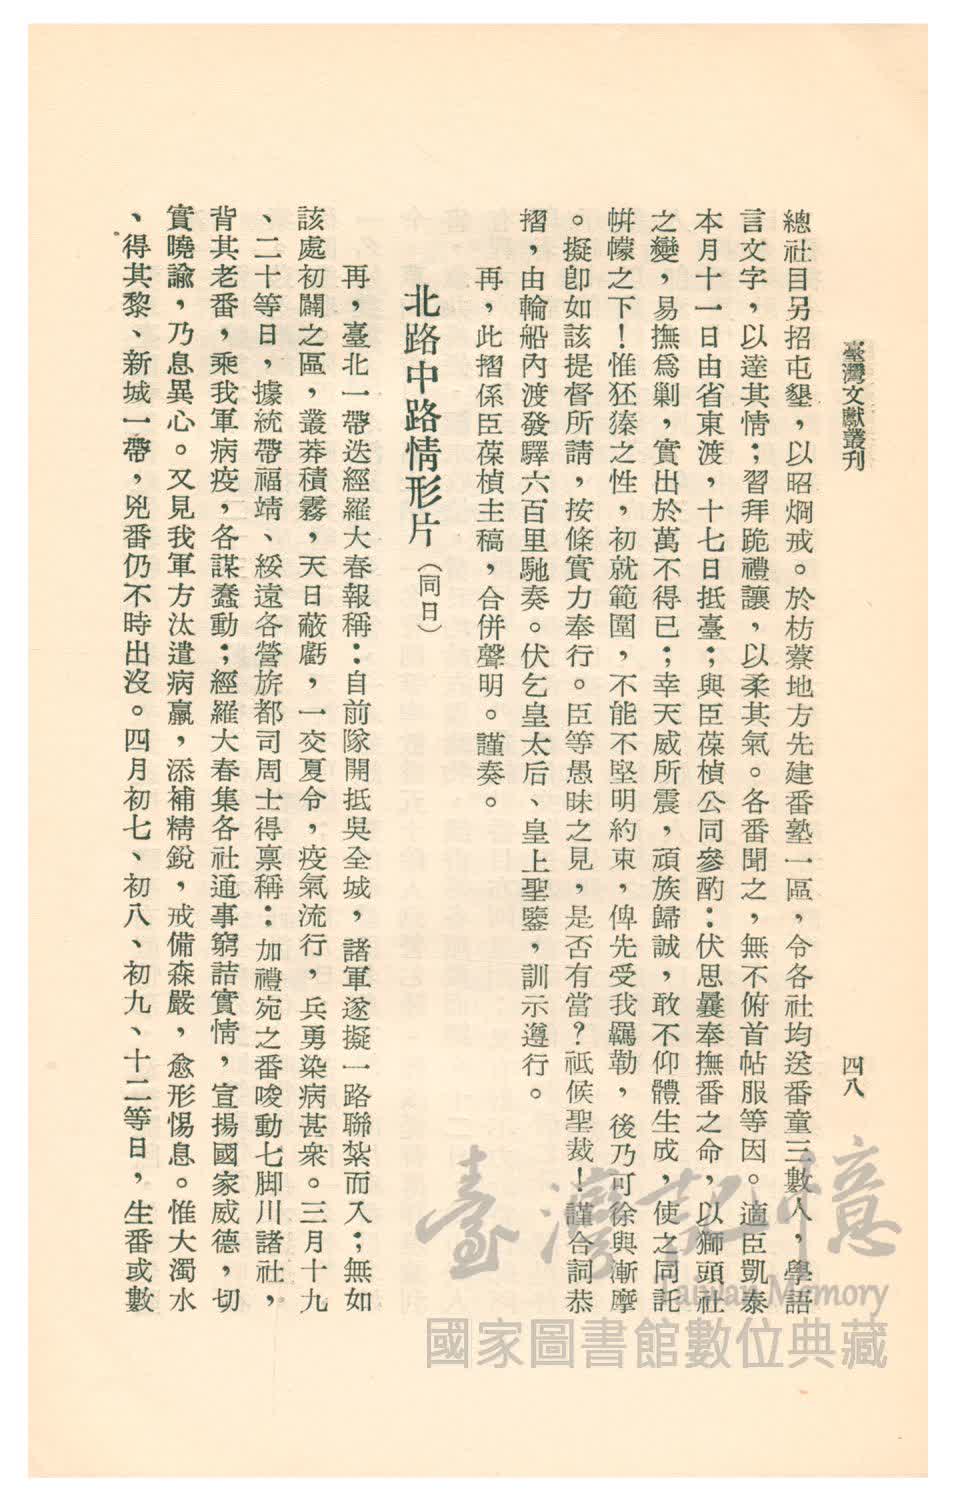 臺灣文獻叢刊
四八
總社目另招屯墾，以昭烱戒。於枋藔地方先建番塾一區，令各社均送番童三數人，學語
言文字，以達其情；習拜跪禮讓，以柔其氣。各番聞之，無不俯首帖服等因。適臣凱泰
本月十一日由省東渡，十七日抵臺；與臣葆楨公同參酌：伏思曩奉撫番之命，以獅頭社
之變，易撫爲剿，實出於萬不得已；幸天威所震，頑族歸誠，敢不仰體生成，使之同託
帲幪之下！惟狉獉之性，初就範圍，不能不堅明約束，俾先受我羈勒，後乃可徐與漸摩
。擬卽如該提督所請，按條實力奉行。臣等愚昧之見，是否有當？祇候聖裁！謹合詞恭
摺，由輪船內渡發驛六百里馳奏。伏乞皇太后、皇上聖鑒，訓示遵行。
再，此摺係臣葆楨主稿，合併聲明。謹奏。
北路中路情形片（同日）
再，臺北一帶迭經羅大春報稱：自前隊開抵吳全城，諸軍遂擬一路聯紮而入；無如
該處初闢之區，叢莽積霧，天日蔽虧，一交夏令，疫氣流行，兵勇染病甚衆。三月十九
、二十等日，據統帶福靖、綏遠各營旂都司周士得稟稱：加禮宛之番唆動七脚川諸社，
背其老番，乘我軍病疫，各謀蠢動；經羅大春集各社通事窮詰實情，宣揚國家威德，切
實曉諭，乃息異心。又見我軍方汰遣病羸，添補精銳，戒備森嚴，愈形惕息。惟大濁水
、得其黎、新城一帶，兇番仍不時出沒。四月初七、初八、初九、十二等日，生番或數
臺灣記憶
Taiwan Memory
國家圖書館數位典藏